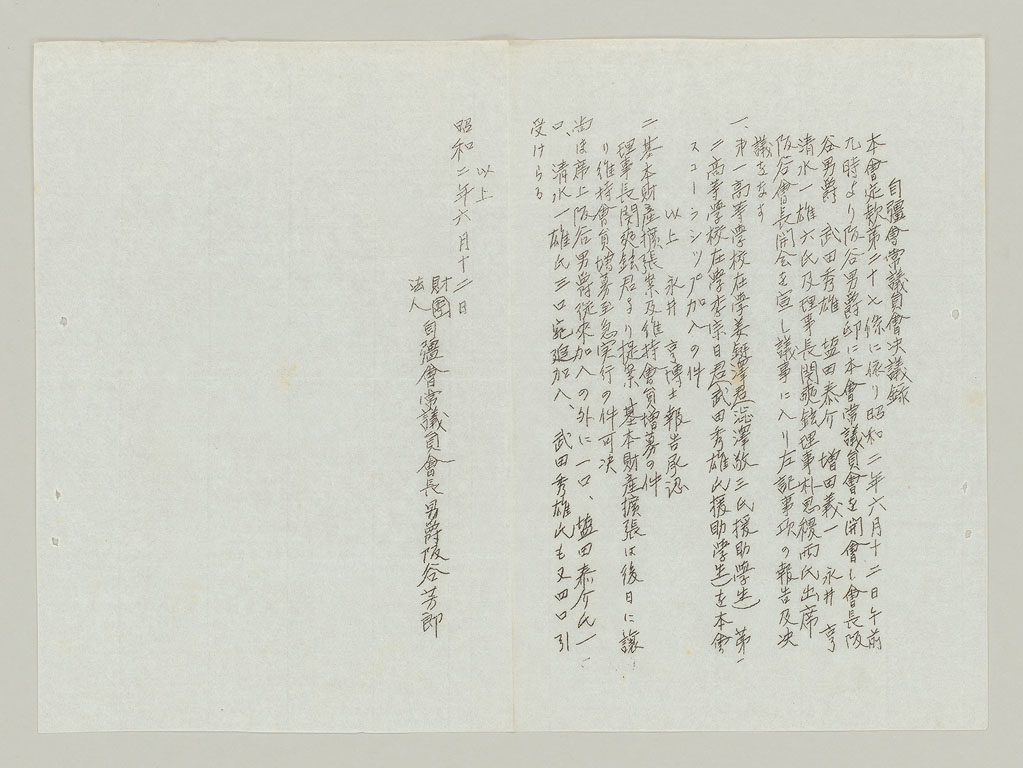 自彊會常議員會決議録
本會定款第二十七條に依り昭和二年六月十二日午前
九時より阪谷男爵邸に本會常議員會を開會し會長阪
谷男爵 武田秀雄 塩田泰介 増田義一 永井 亨
清水一雄六氏及理事長閔奭鉉理事朴思稷両氏出席
阪谷會長開会を宣し議事に入り左記事項の報告及決
議をなす
一、第一高等学校在学姜鋌澤君(澁澤敬三氏援助学生) 第一
二高等学校在学李宗日君(武田秀雄氏援助学生)を本會
スコーラシツプ加入の件
以上 永井 亨博士報告承認
二 基本財産擴張案及維持會員増募の件
理事長閔奭鉉君より提案 基本財産擴張は後日に譲
り維持會員増募至急実行の件可決
尚ほ席上阪谷男爵従来加入の外に一口、塩田泰介氏一
口、清水一雄氏三口宛追加入、武田秀雄氏も又四口引
受けらる
以上
昭和二年六月十二日
財團法人 自彊會常議員會長男爵阪谷芳郎